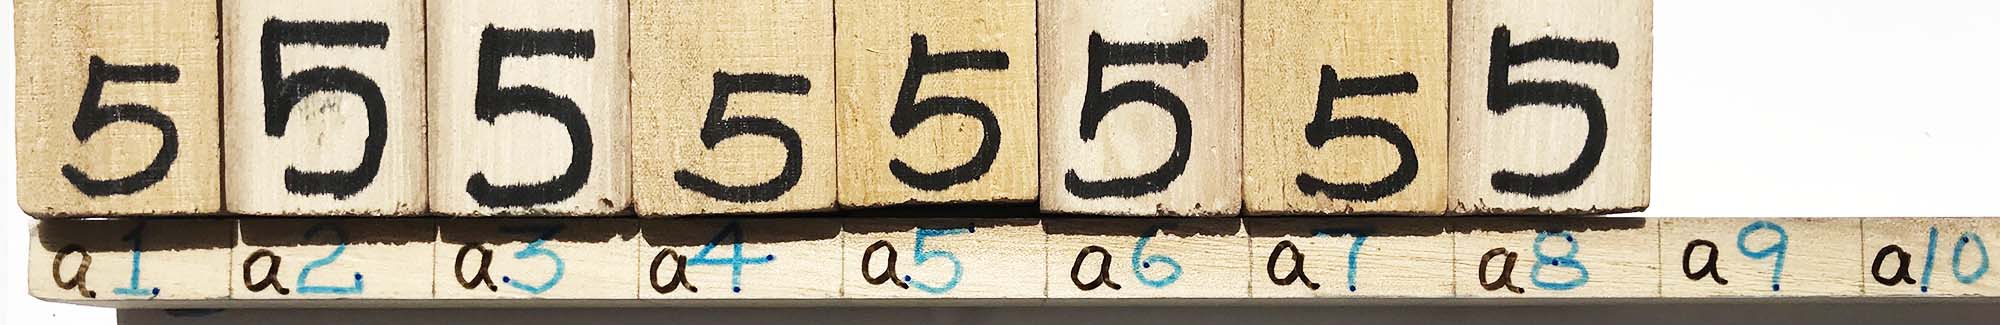 5 5 5 5 5 5 5 5
a1 a2 a3 a4 a5 a6 a7 a8 a9 a10